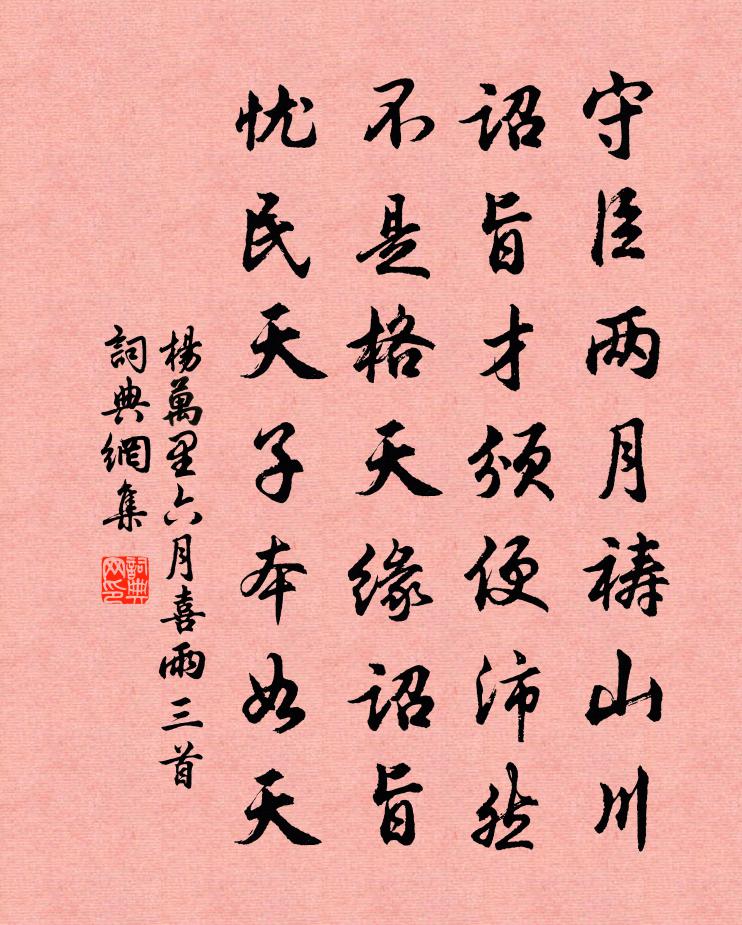 守臣两月祷山川
诏旨才颁便沛然
不是格天缘诏旨
忧民天子本如天
楊萬里六月喜雨三首
詞典網集
詞典
网印